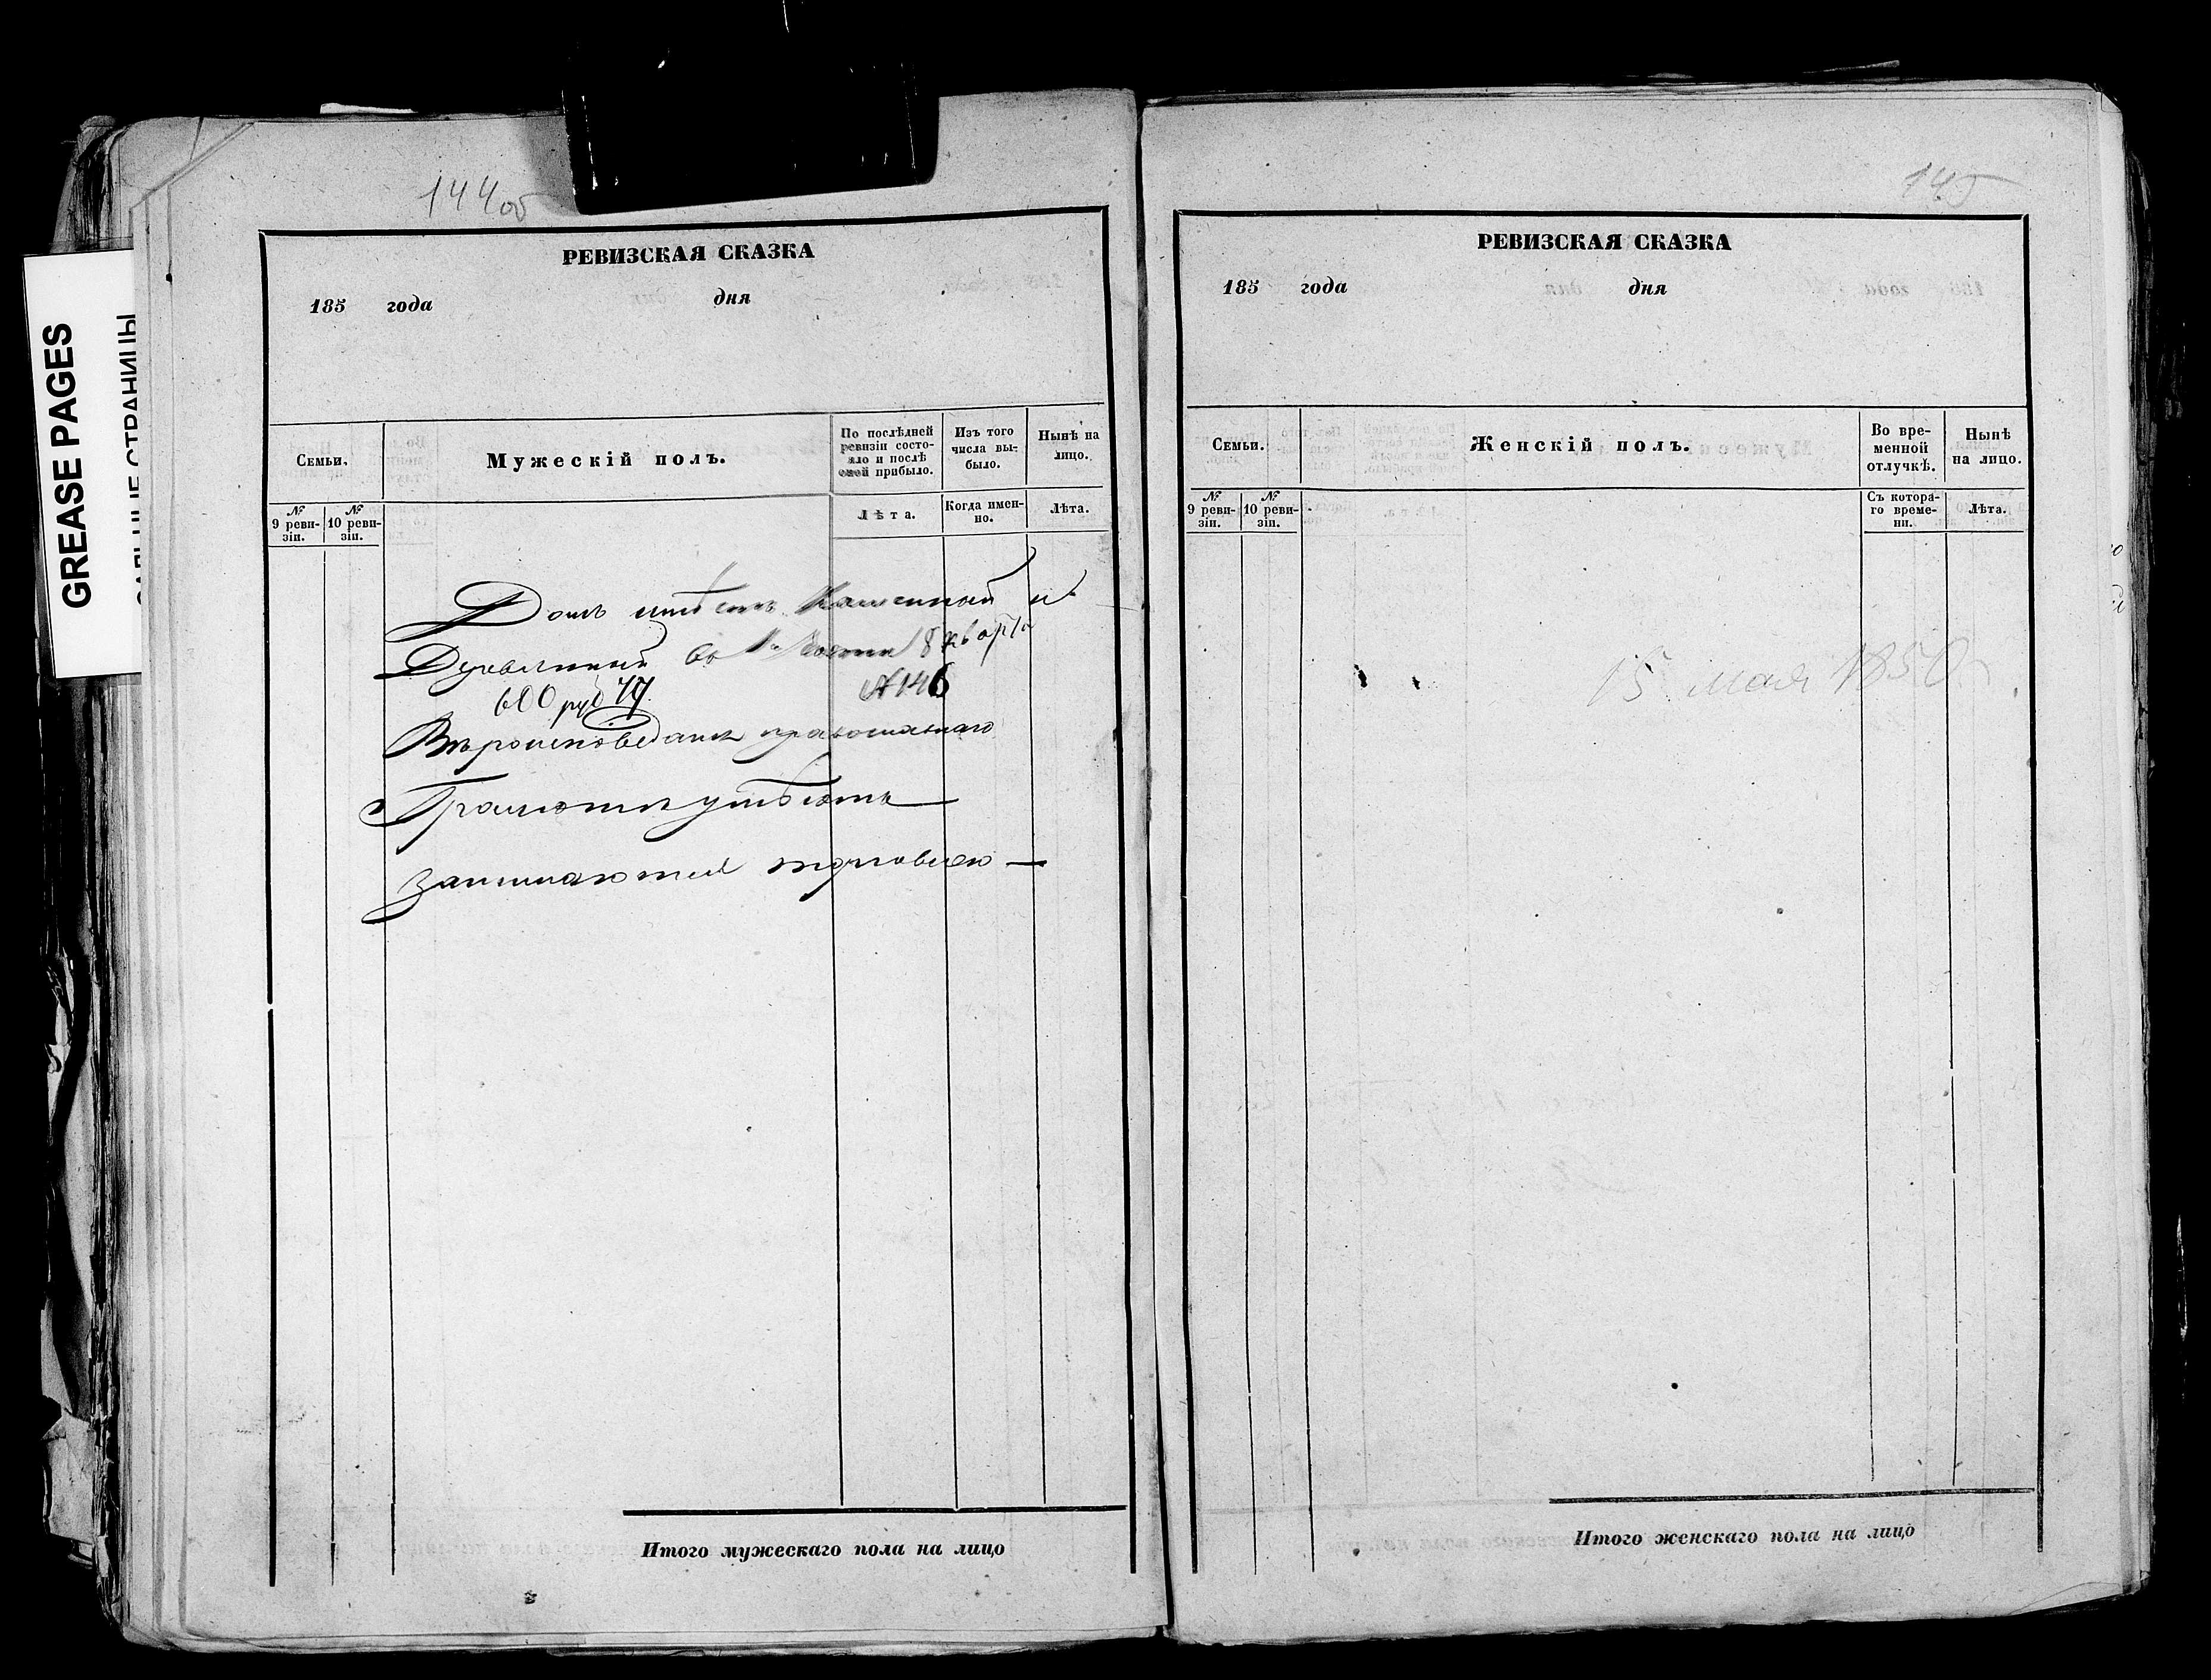 GREASE PAGES
144об
РЕВИЗСКАЯ СКАЗКА
185 года дня
Семьи.
Мужескій полъ.
По послѣдней ревизіи состояло и послѣ оной прибыло.
Изъ того числа выбыло.
Нынѣ на лицо.
№ 9 ревизіи.
№ 10 ревизіи.
Лѣта.
Когда именно.
Лѣта.
Домъ имѣетъ Каменный и
Деревянный во 1й Части 8 кварта
600 руб
№ 146
Вѣроисповеданія православнаго
Грамоте умѣютъ
занимаются торговлею
Итого мужескаго пола на лицо
145
РЕВИЗСКАЯ СКАЗКА
185 года дня
Семьи.
Женскій полъ.
Во временной отлучкѣ.
Нынѣ на лицо.
№ 9 ревизіи.
№ 10 ревизіи.
Съ котораго времени.
Лѣта.
15 мая 1850
Итого женскаго пола на лицо